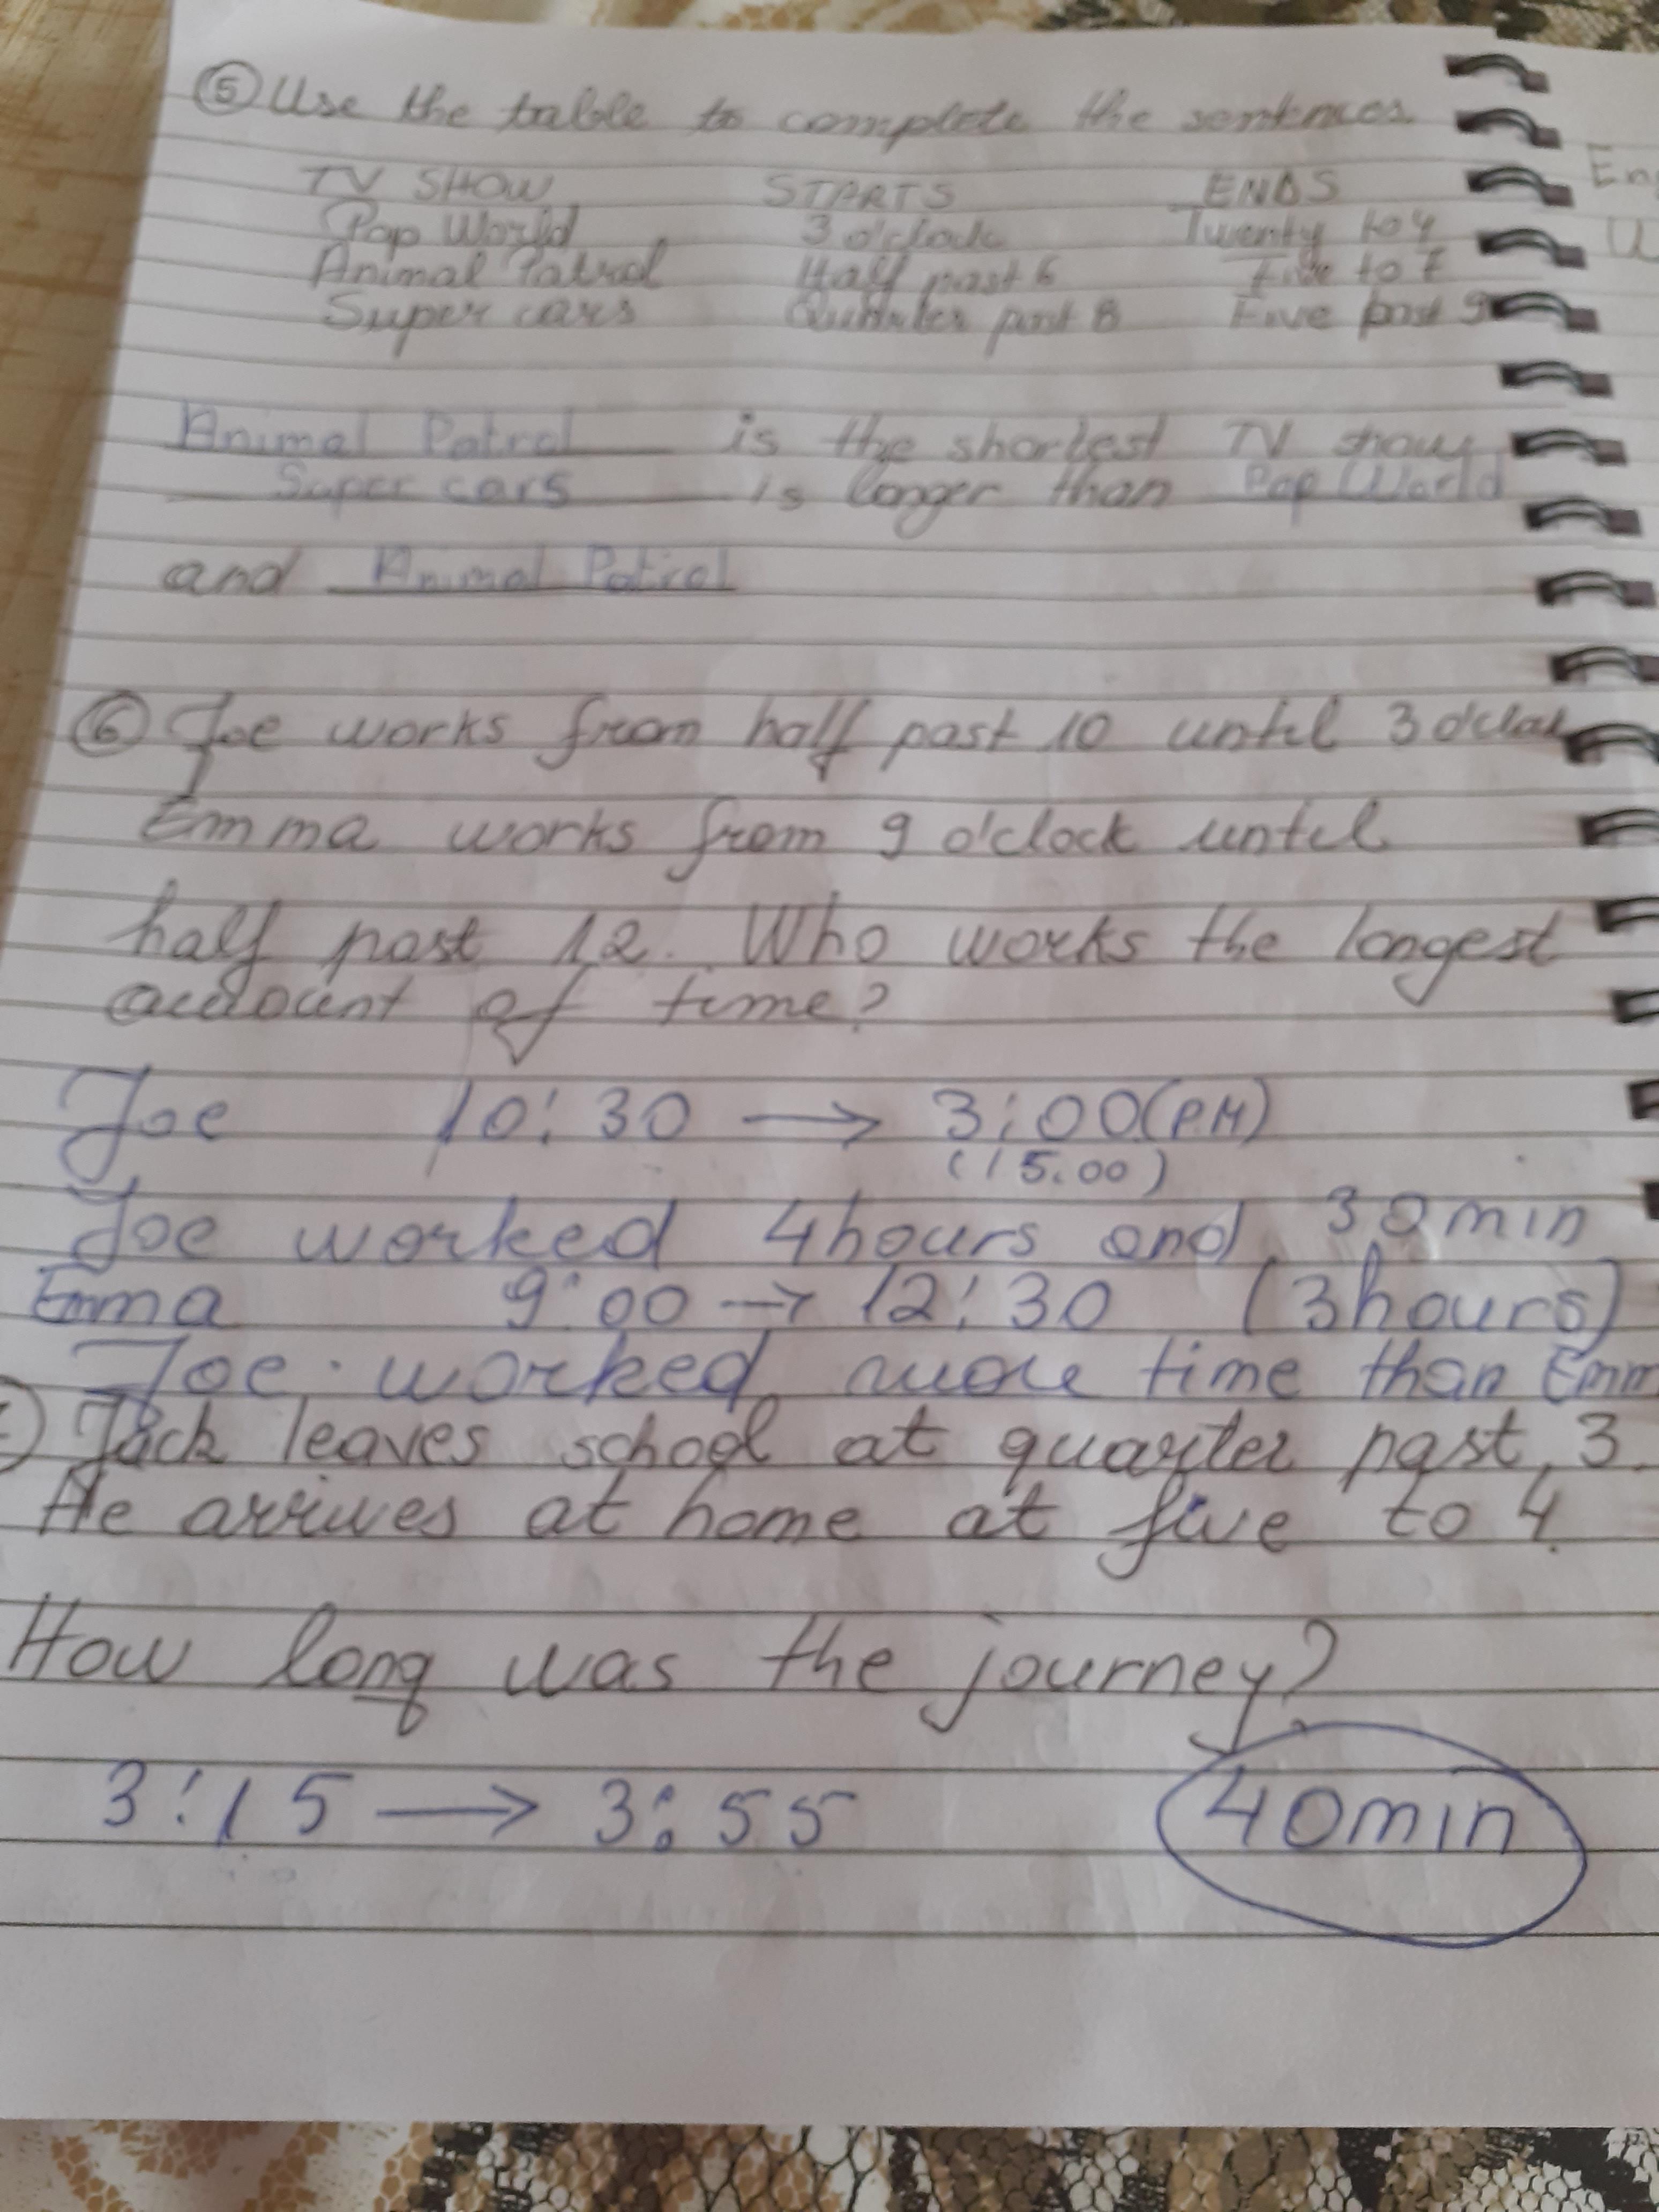 ⑤ Use the table to complete the sentences.
TV SHOW STARTS ENDS
Pop World 3 o'clock Twenty to 4
Animal Patrol Half past 6 Five to 7
Super cars Quarter past 8 Five past 9
Animal Patrol is the shortest TV show
Super cars is longer than Pop World
and Animal Patrol
⑥ Joe works from half past 10 until 3 o'cloc
Emma works from 9 o'clock until
half past 12. Who works the longest
amount of time?
Joe 10:30 → 3:00(PM)
(15.00)
Joe worked 4hours and 30min
Emma 9:00 → 12:30 (3hours)
Joe worked more time than Emm
Jack leaves school at quarter past 3.
He arrives at home at five to 4.
How long was the journey?
3:15 → 3:55 40min